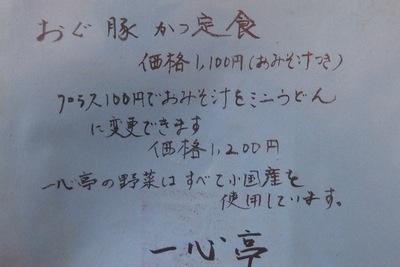 おぐ豚かつ定食
価格1,100円(おみそ汁つき)
プラス100円でおみそ汁をミニうどん
に変更できます
価格1,200円
一心亭の野菜はすべて小国産を
使用しています。
一心亭